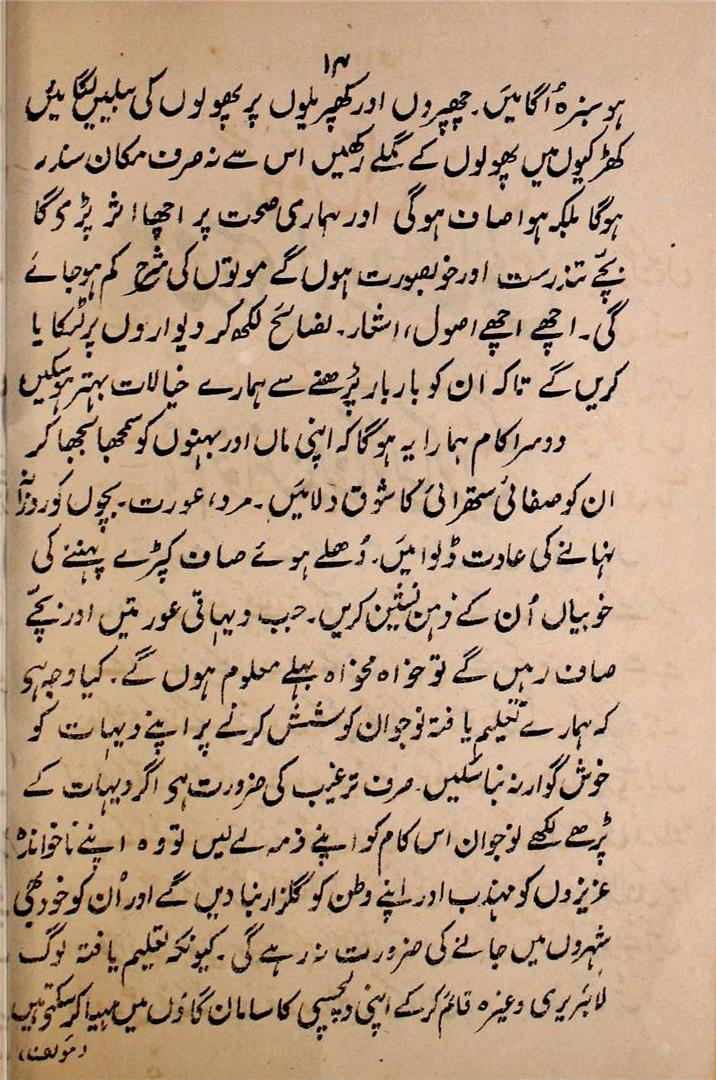 ۱۴
ہو سبزہ اُگائیں۔ چھپروں اور کھپریلوں پر پھولوں کی بیلیں لگائیں
کھڑکیوں میں پھولوں کے گملے رکھیں اس سے نہ صرف مکان سندر
ہوگا بلکہ ہوا صاف ہوگی اور ہماری صحت پر اچھا اثر پڑی گا
بچّے تندرست اور خوبصورت ہوں گے موتوں کی شرح کم ہو جائے
گی۔ اچھے اچھے اصول، اشعار۔ نصائح لکھ کر دیواروں پر لٹکا یا
کریں گے تاکہ ان کو بار بار پڑھنے سے ہمارے خیالات بہتر ہوسکیں
دوسرا کام ہمارا یہ ہوگا کہ اپنی ماں اور بہنوں کو سمجھا بجھا کر
ان کو صفائی ستھرائی کا شوق دلائیں۔ مرد، عورت۔ بچوں کو روزآنہ
نہانے کی عادت ڈلوائیں۔ دُھلے ہوئے صاف کپڑے پہننے کی
خوبیاں اُن کے ذہن نشین کریں۔ جب دیہاتی عورتیں اور بچّے
صاف رہیں گے تو خواہ مخواہ بھلے معلوم ہوں گے۔ کیا وجہ ہی
کہ ہمارے تعلیم یافتہ نوجوان کوشش کرنے پر اپنے دیہات کو
خوش گوار نہ بنا سکیں۔ صرف ترغیب کی ضرورت ہی اگر دیہات کے
پڑھے لکھے نوجوان اس کام کو اپنے ذمہ لے لیں تو وہ اپنے ناخواندہ
عزیزوں کو مہذب اور اپنے وطن کو گلزار بنا دیں گے اور اُن کو خود بھی
شہروں میں جانے کی ضرورت نہ رہے گی۔ کیونکہ تعلیم یافتہ لوگ
لائبریری وغیرہ قائم کرکے اپنی دلچسپی کا سامان گاؤں میں مہیا کرسکتے ہیں
(مولفہ)